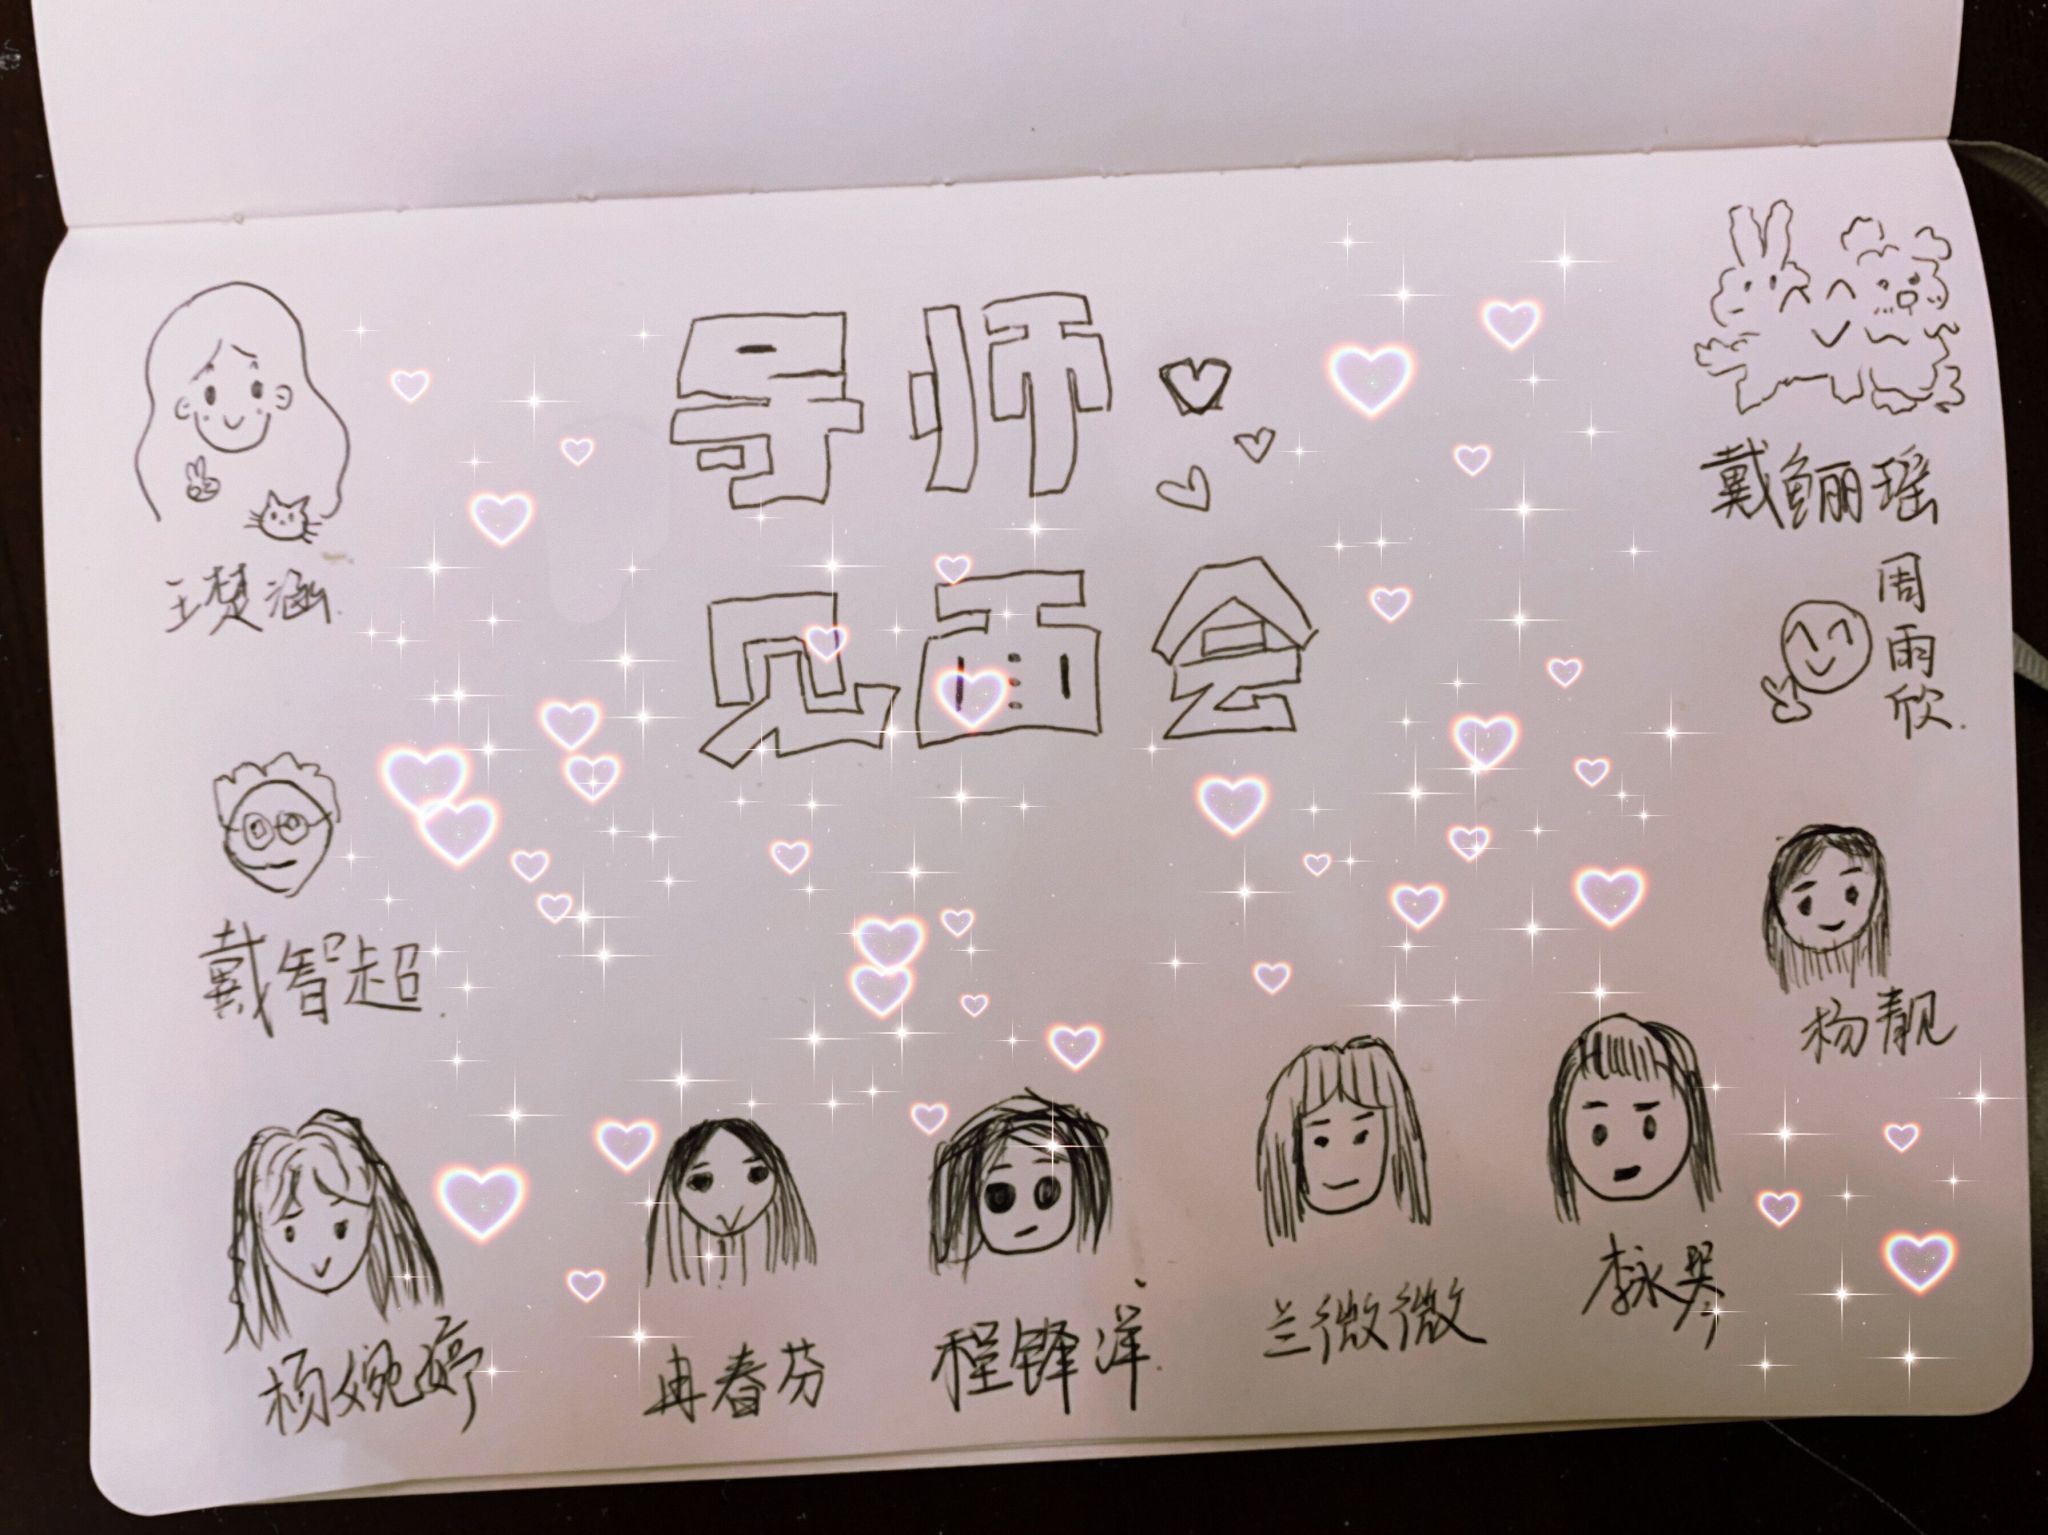 导师
见面会
王楚涵.
戴鲡瑶
周雨欣.
戴智超.
杨靓
杨婉婷
冉春芬
程锋洋.
兰微微
李永琴